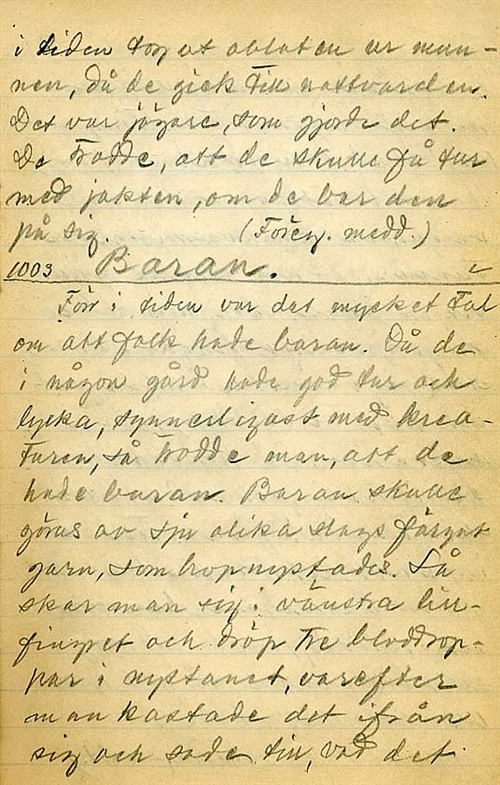 i tiden tog ut oblaten ur mun-
nen, då de gick till nattvarden.
Det var jägare, som gjorde det.
De trodde, att de skulle få tur
med jakten, om de bar den
på sig. (Föreg. medd.)
1003 Baran.
Förr i tiden var det mycket tal
om att folk hade baran. Då de
i någon gård hade god tur och
lycka, synnerligast med krea-
turen, så trodde man, att de
hade baran. Baran skulle
göras av sju olika slags färgat
garn, som hopnystades. Så
skar man sig i vänstra lill-
fingret och dröp tre bloddrop-
par i nystanet, varefter
man kastade det ifrån
sig och sade till, vad det